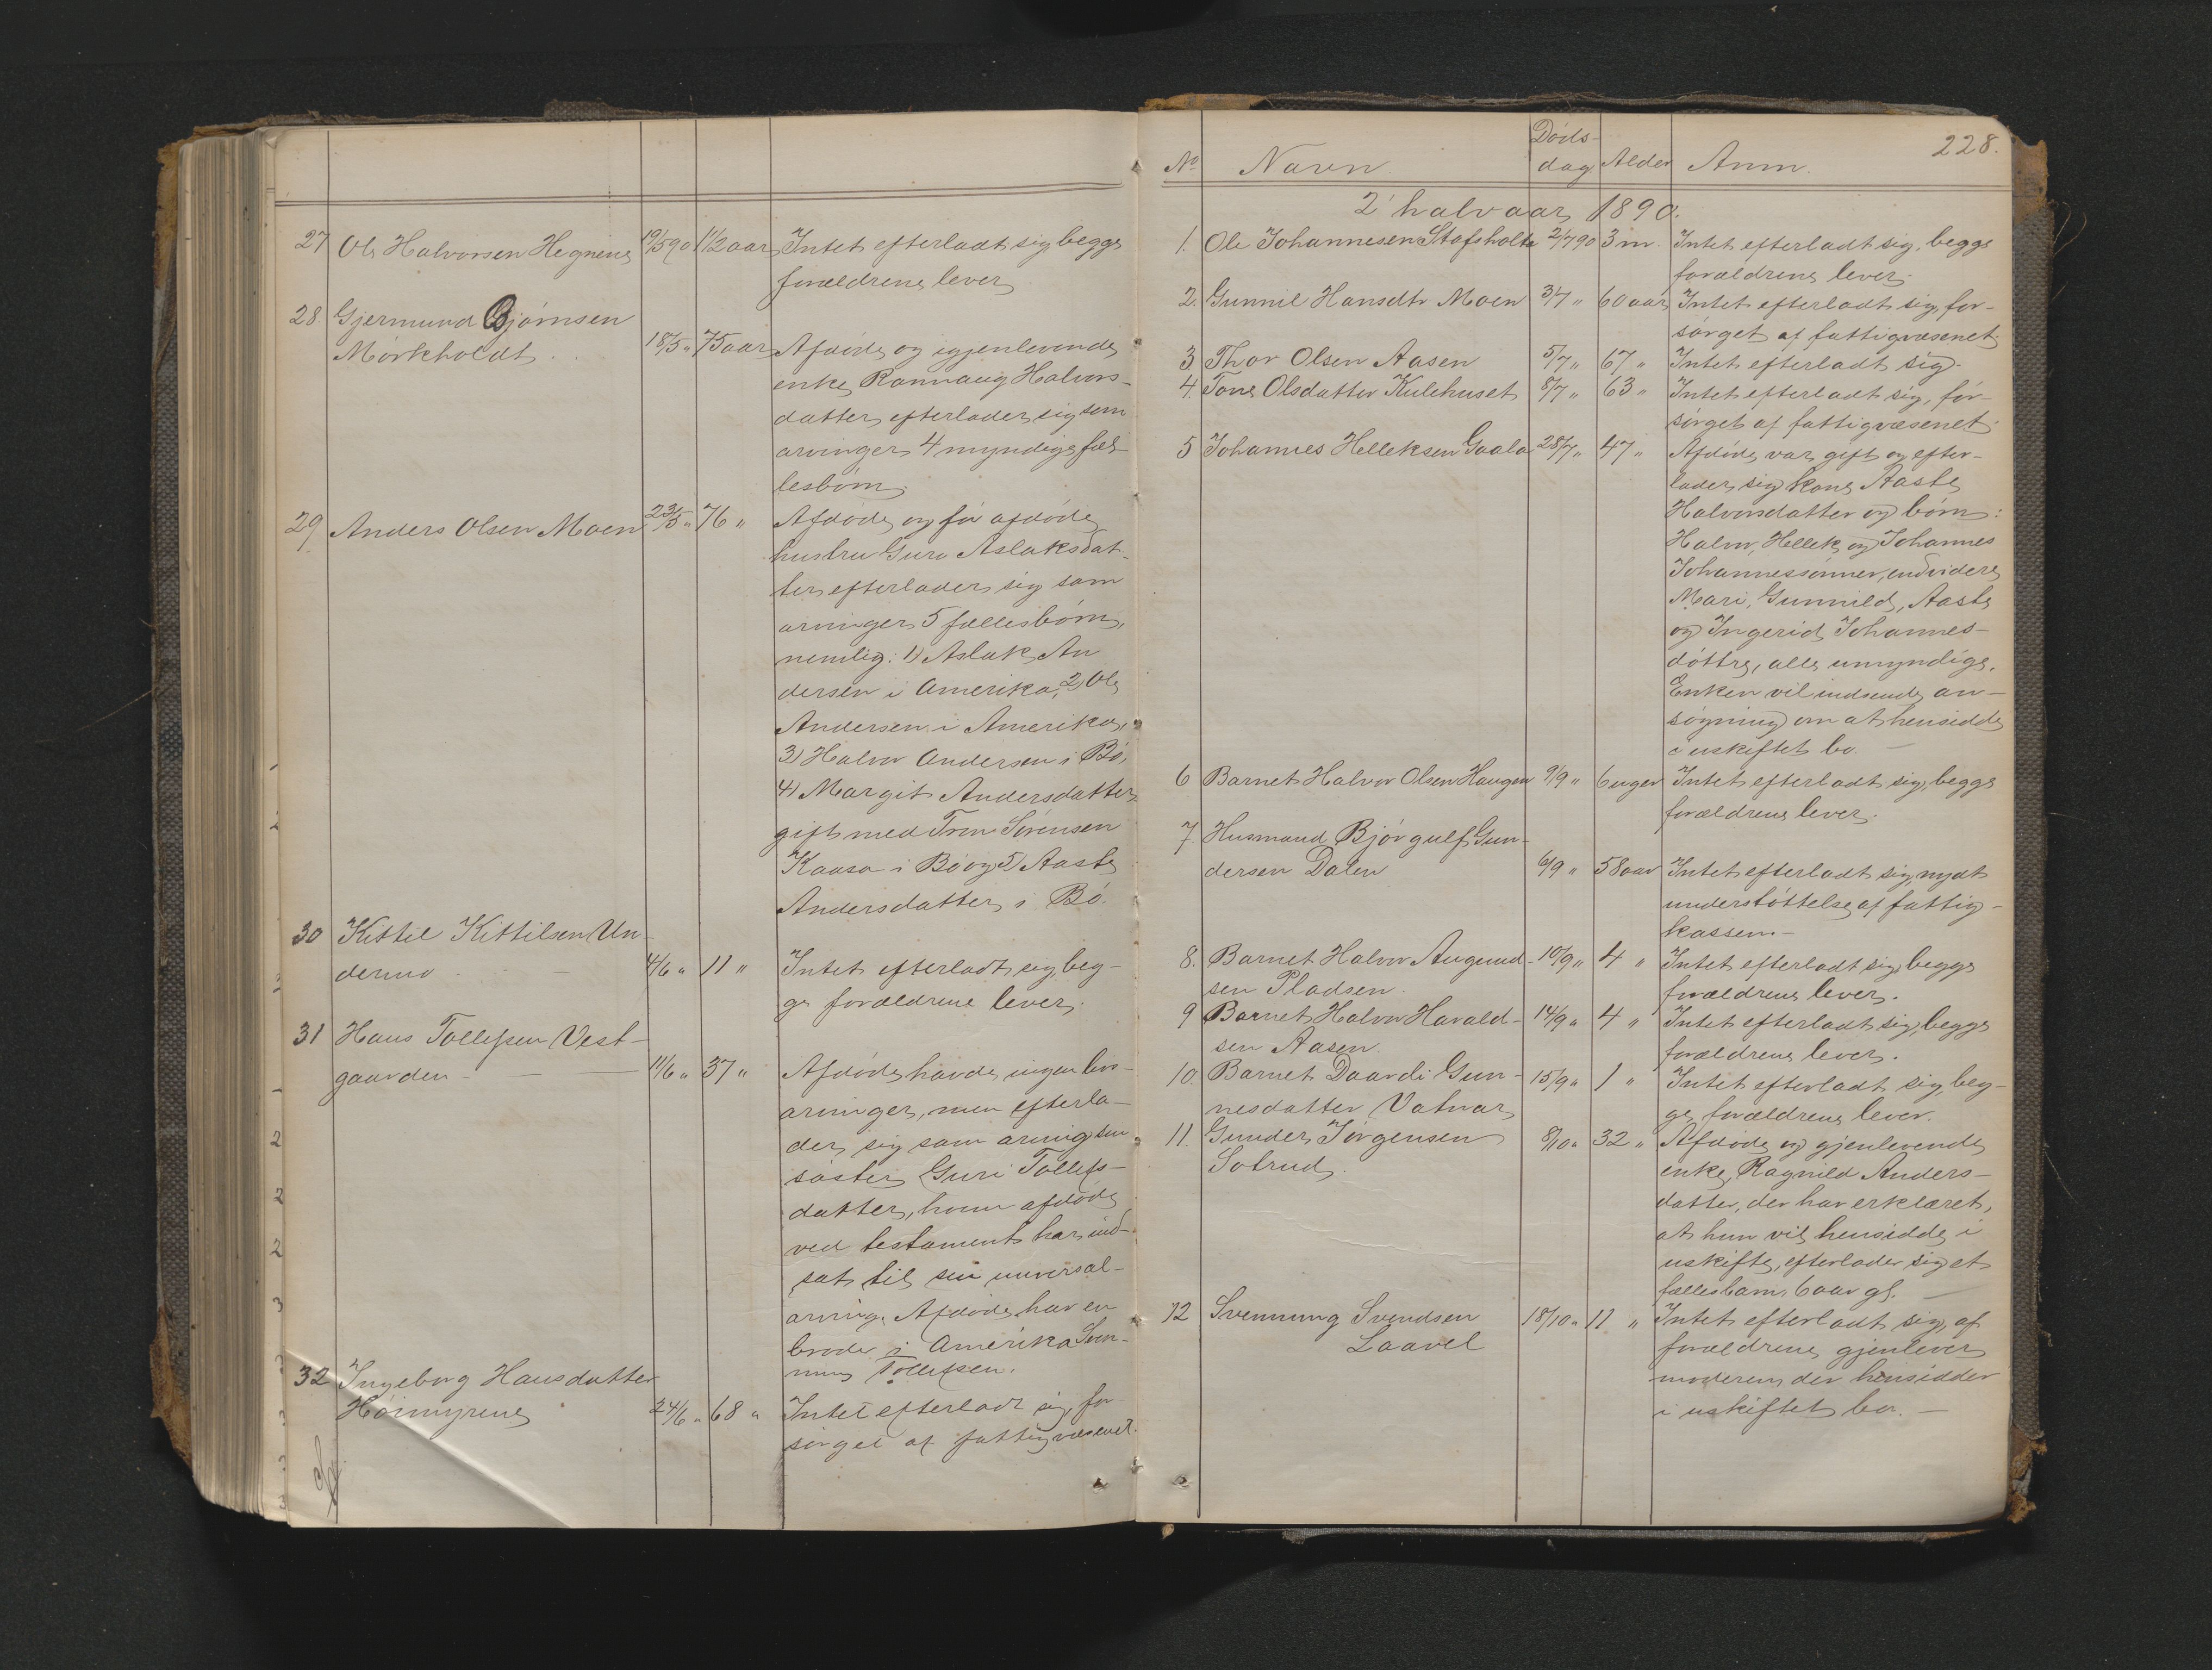 27 Ole Halvorsen Hegnene 19/5 90 1 1/2 aar Intet efterladt sig, begge
forældrene lever
28 Gjermund Bjørnsen
Mørkholdt . . 18/5 " 75 aar Afdøde og igjenlevende
enke Rannaug Halvors-
datter efterlader sig som
arvinger 4 myndige fæl-
lesbørn.
29 Anders Olsen Moen 23/5 " 76 " Afdøde og før afdøde
hustru Guro Aslaksdat-
ter efterlader sig som
arvinger 5 fællesbørn,
nemlig: 1) Aslak An
dersen i Amerika, 2) Ole
Andersen i Amerika,
3) Halvor Andersen i Bø,
4) Margit Andersdatter
gift med Tron Sørensen
Kaasa i Bø og 5) Aaste
Andersdatter i Bø.
30 Kittil Kittilsen Un-
dermo 4/6 " 11 " Intet efterladt sig, beg-
ge forældrene lever.
31 Hans Tollefsen Vest-
gaarden - 11/6 " 37 " Afdøde havde ingen livs-
arvinger, men efterla-
der sig som arving sin
søster Guri Tollefs-
datter, hvem afdøde
ved testament har ind-
sat til sin universal-
arving. Afdøde har en
broder i Amerika Sven-
ning Tollefsen.
32 Ingeborg Hansdatter
24/6 " 68 " Intet efterladt sig, for-
sørget af fattigvæsenet.
228.
No Navn. Døds-
dag Alder Anm.
2' halvaar 1890.
1. Ole Johannesen Stafsholte 2/7 90 3 m. Intet efterladt sig, begge
forældrene lever.
2. Gunnil Hansdtr Moen 3/7 " 60 aar Intet efterladt sig, for-
sørget af fattigvæsenet
3 Thor Olsen Aasen 5/7 " 67 " Intet efterladt sig.
4. Tone Olsdatter Kulehuset 8/7 " 63 " Intet efterladt sig, for-
sørget af fattigvæsenet.
5 Johannes Helleksen Gaala 28/7 " 47 " Afdøde var gift og efter-
lader sig kone Aaste
Halvorsdatter og børn:
Halvor, Hellek og Johannes
Johannessønner, endvidere
Mari, Gunnild, Aaste
og Ingerid Johannes-
døttre, alle umyndige.
Enken vil indsende an-
søgning om at hensidde
i uskiftet bo. -
6 Barnet Halvor Olsen Haugen 9/9 " 6 uger Intet efterladt sig, begge
forældrene lever.
7. Husmand Bjørgulf Gun-
dersen Dalen 6/9 " 58 aar Intet efterladt sig, nydt
understøttelse af fattig-
kassen. -
8. Barnet Halvor Augund- 10/9 " 4 " Intet efterladt sig, begge
sen Pladsen. forældrene lever.
9 Barnet Halvor Harald- 14/9 " 4 " Intet efterladt sig, begge
sen Aasen. forældrene lever.
10. Barnet Daardi Gun- 15/9 " 1 " Intet efterladt sig, beg-
nesdatter Vatnar ge forældrene lever.
11. Gunder Jørgensen 8/10 " 32 " Afdøde og gjenlevende
Solrud. enke, Ragnild Anders-
datter, der har erklæret,
at hun vil hensidde i
uskifte, efterlader sig et
fællesbarn, 6 aar gl. -
12 Svennung Svendsen 18/10 " 11 " Intet efterladt sig, af
Laavel forældrene gjenlever
moderen, der hensidder
i uskiftet bo. -